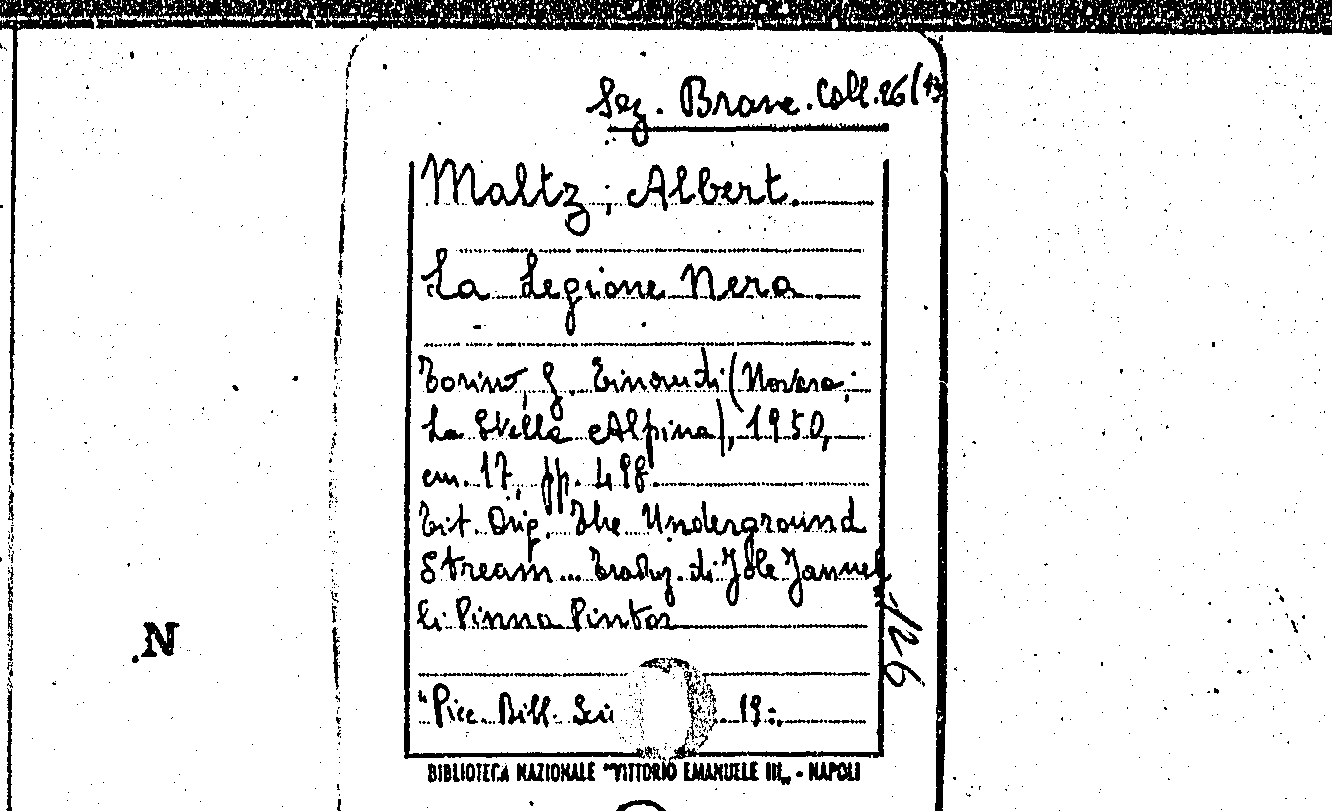 Sez. Branc. Coll. 26 (43
Maltz, Albert.
La Legione Nera
Torino, G. Einaudi (Novara,
La Stella Alpina), 1950,
cm. 17, pp. 498.
Tit. Orig. The Underground
Stream... Traduz. di Jole Jannel
li Pinna Pintor
"Picc. Bibl. Sci . 19.
126
N.
BIBLIOTECA NAZIONALE "VITTORIO EMANUELE III„ - NAPOLI